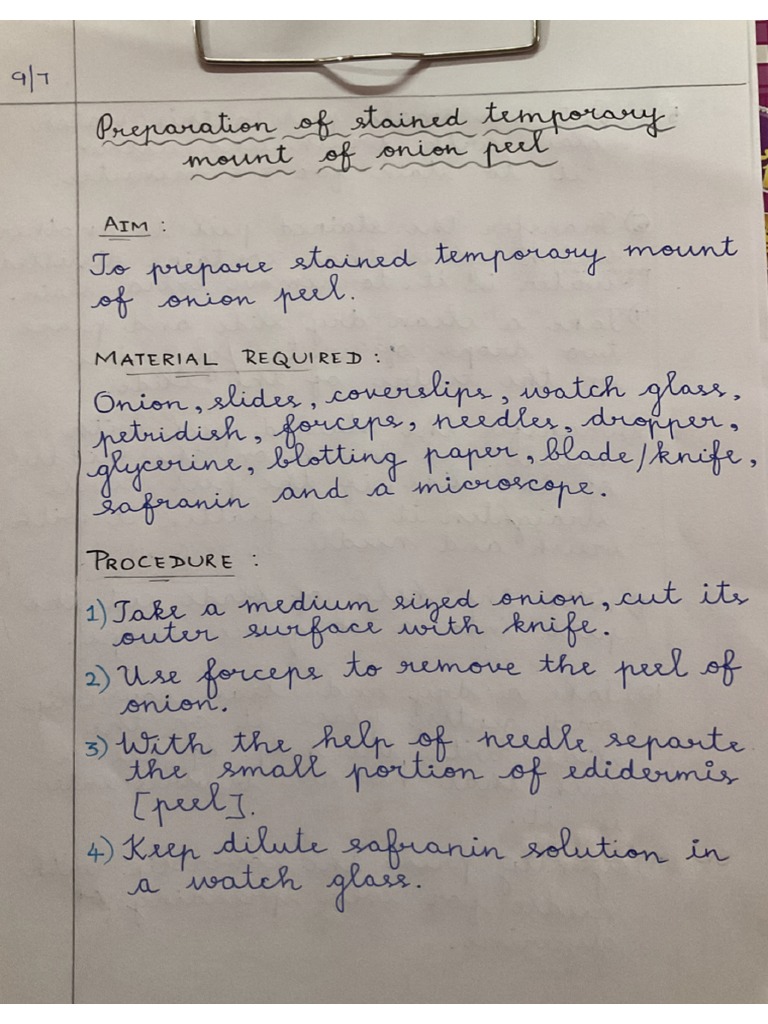 9/7
Preparation of stained temporary
mount of onion peel
AIM :
To prepare stained temporary mount
of onion peel.
MATERIAL REQUIRED :
Onion, slides, coverslips, watch glass,
petridish, forceps, needles, dropper,
glycerine, blotting paper, blade/knife,
safranin and a microscope.
PROCEDURE :
1) Take a medium sized onion, cut its
outer surface with knife.
2) Use forceps to remove the peel of
onion.
3) With the help of needle separte
the small portion of edidermis
[peel].
4) Keep dilute safranin solution in
a watch glass.